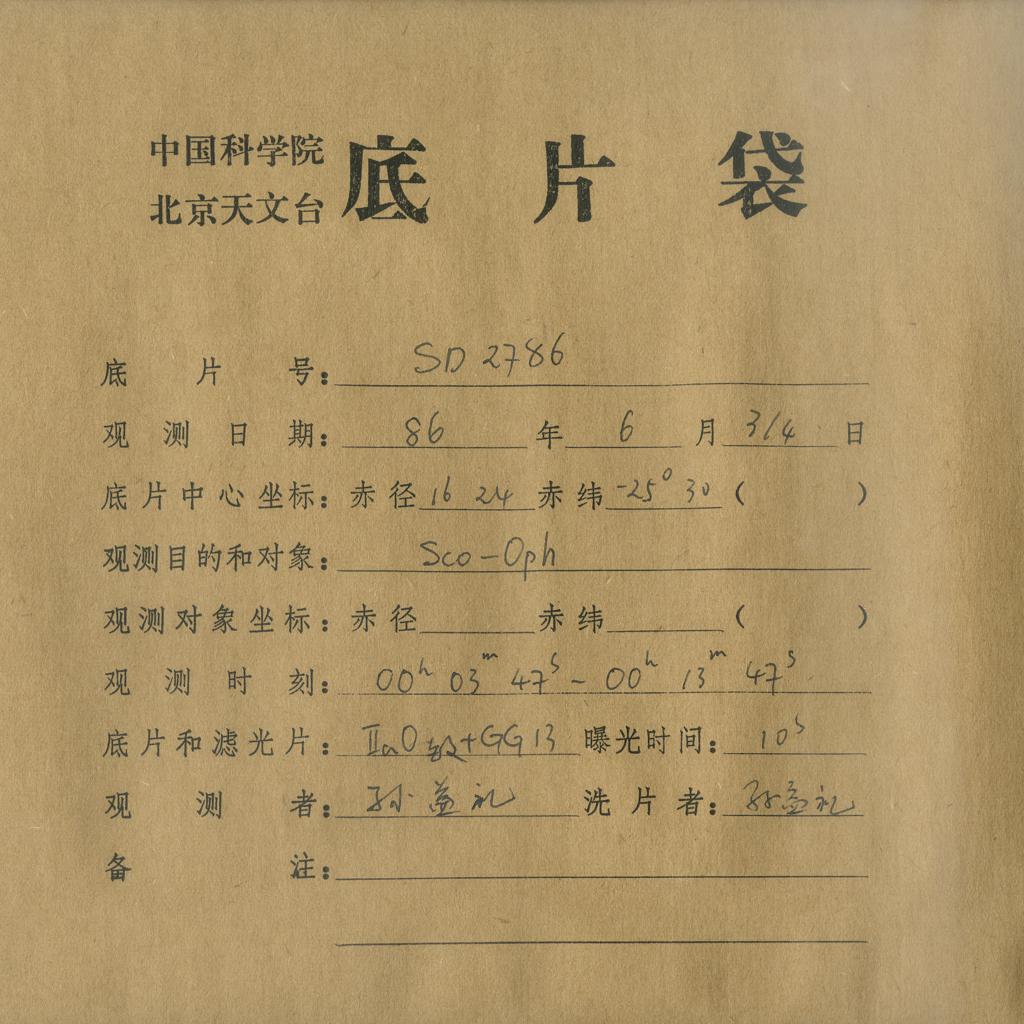 中国科学院
北京天文台
底片袋
底片号: SD 2786
观测日期: 86 年 6 月 3/4 日
底片中心坐标: 赤径 16 24 赤纬 -25° 30 ( )
观测目的和对象: Sco-Oph
观测对象坐标: 赤径 赤纬 ( )
观测时刻: 00h 03m 47s - 00h 13m 47s
底片和滤光片: IIaO 敏+GG13 曝光时间: 10s
观测者: 孙益礼 洗片者: 孙益礼
备注: